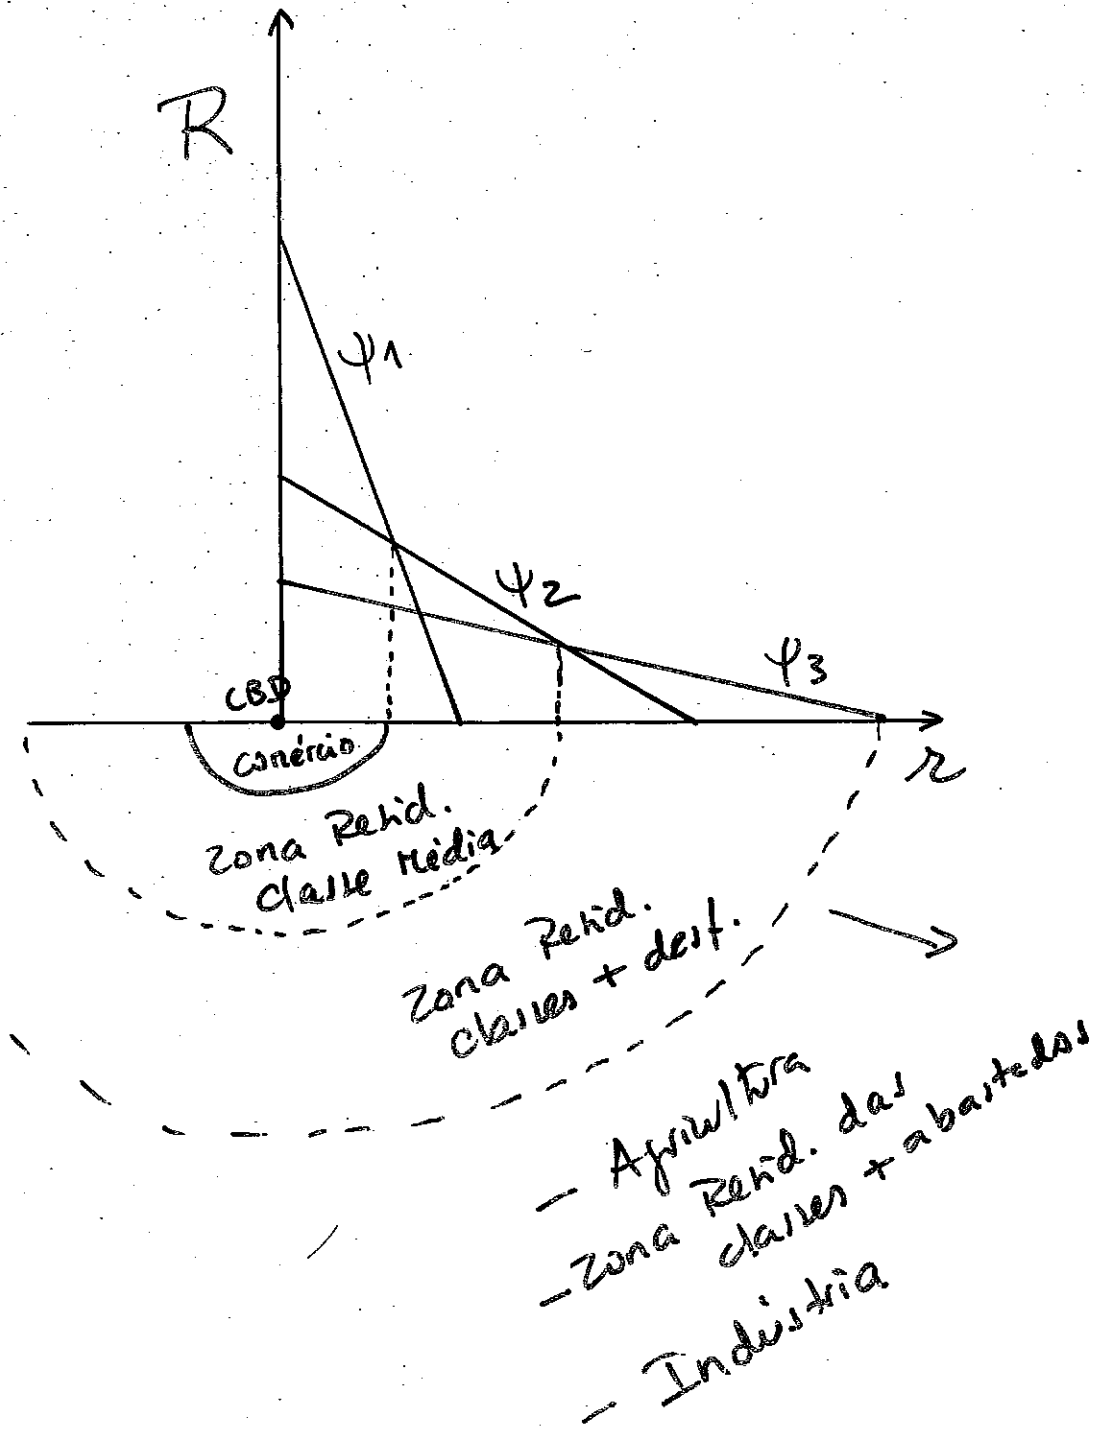 R
ψ1
ψ2
ψ3
CBD
r
comércio
Zona Resid.
classe Média
Zona Resid.
classes + desf.
- Agricultura
- Zona Resid. das
classes + abastadas
- Indústria